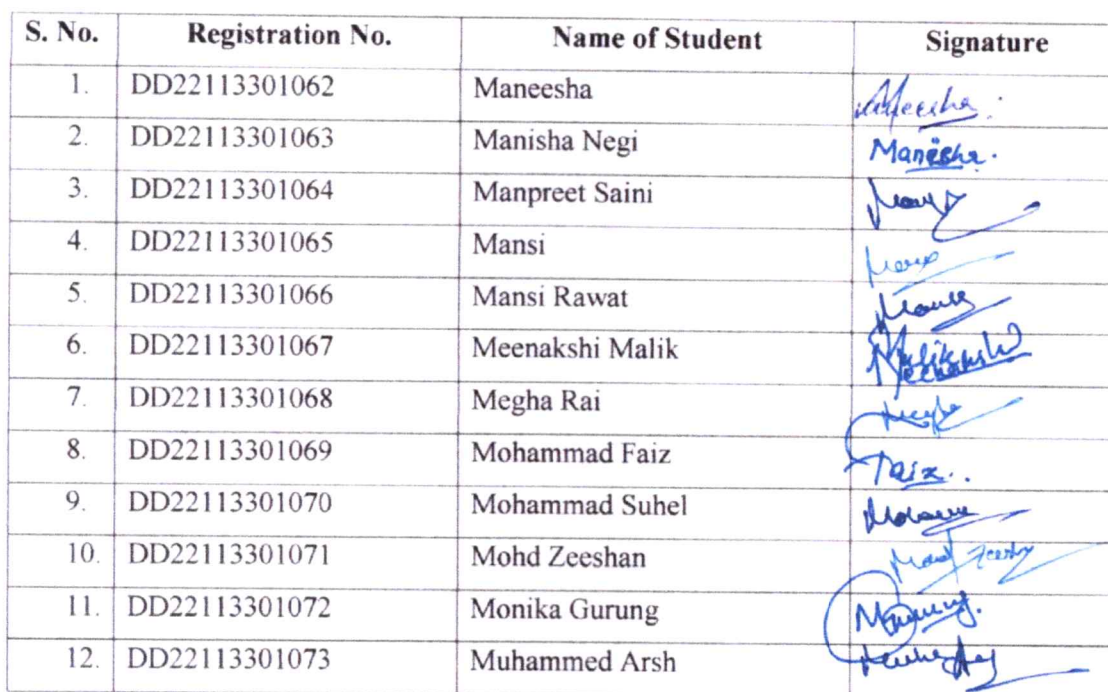 S. No. Registration No. Name of Student Signature
1. DD22113301062 Maneesha
2. DD22113301063 Manisha Negi Manisha.
3. DD22113301064 Manpreet Saini
4. DD22113301065 Mansi
5. DD22113301066 Mansi Rawat
6. DD22113301067 Meenakshi Malik Malik Meenakshi
7. DD22113301068 Megha Rai
8. DD22113301069 Mohammad Faiz Faiz..
9. DD22113301070 Mohammad Suhel
10. DD22113301071 Mohd Zeeshan
11. DD22113301072 Monika Gurung
12. DD22113301073 Muhammed Arsh